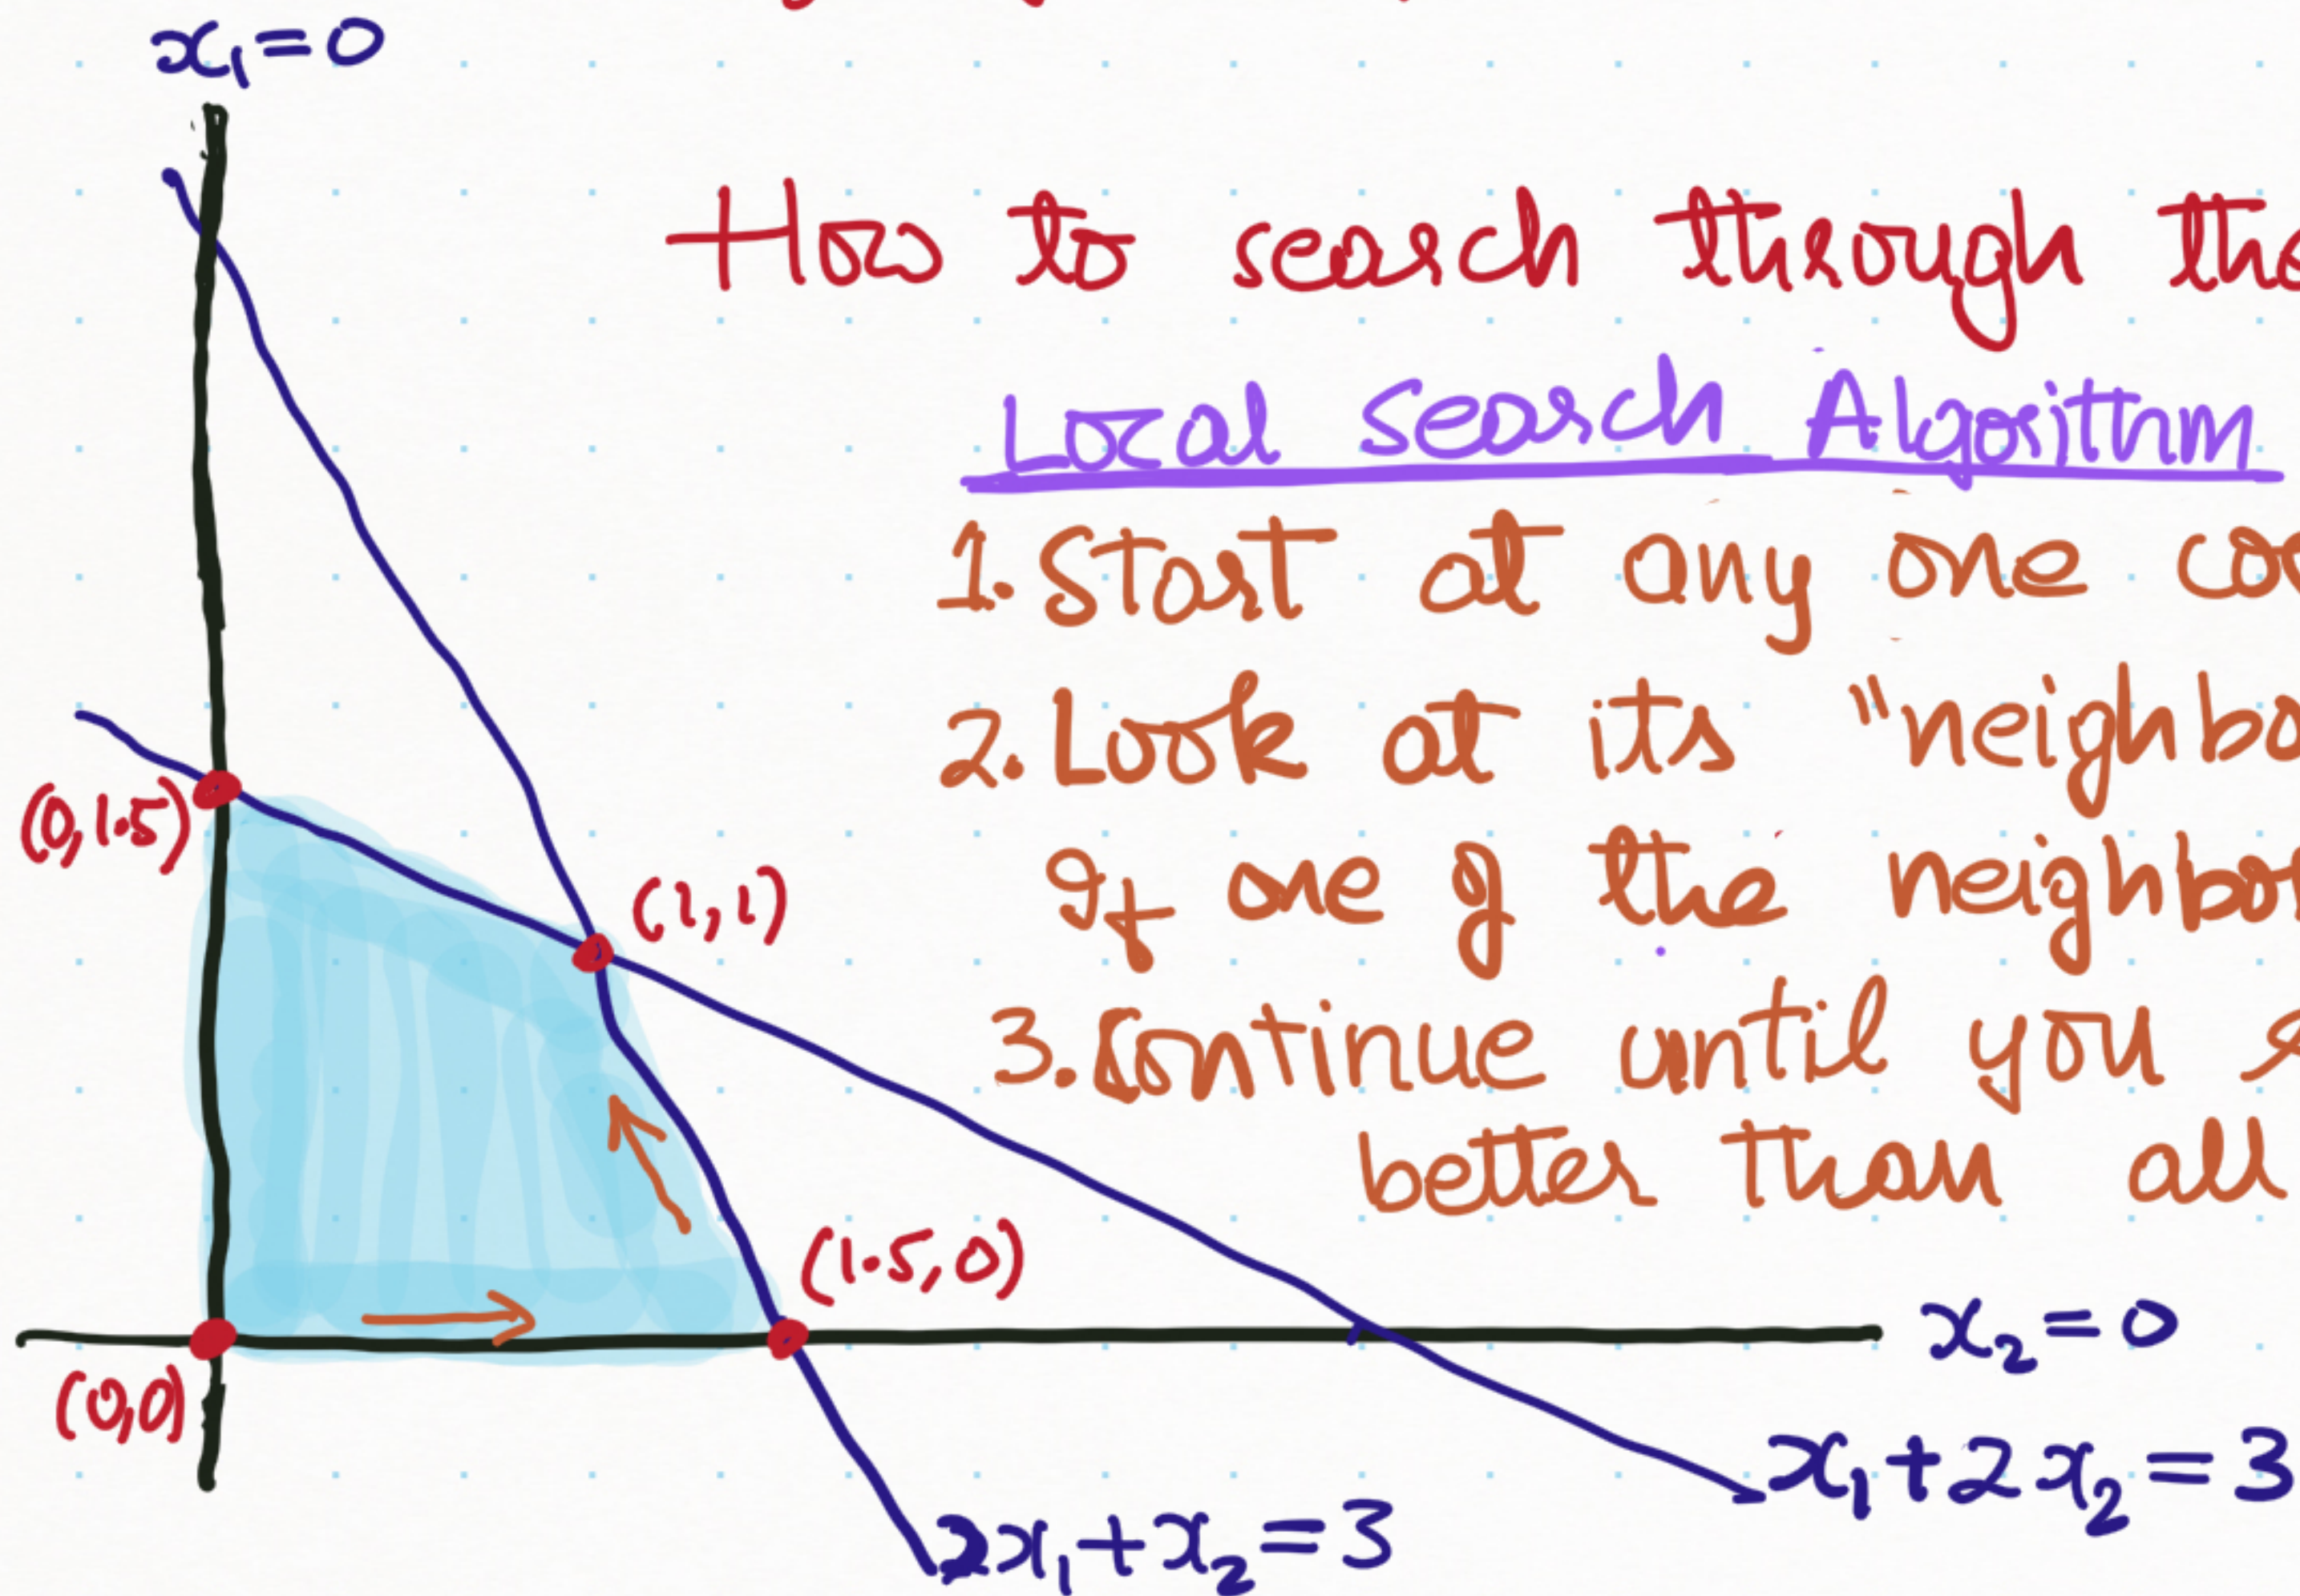 x₁=0
How to search through the
Local search Algorithm
1. Start at any one
2. Look at its "neighbo
(0,1.5)
(1,1)
If one of the neighbor
3. Continue until you
better than all
(1.5,0)
x₂=0
(0,0)
x₁+2x₂=3
2x₁+x₂=3